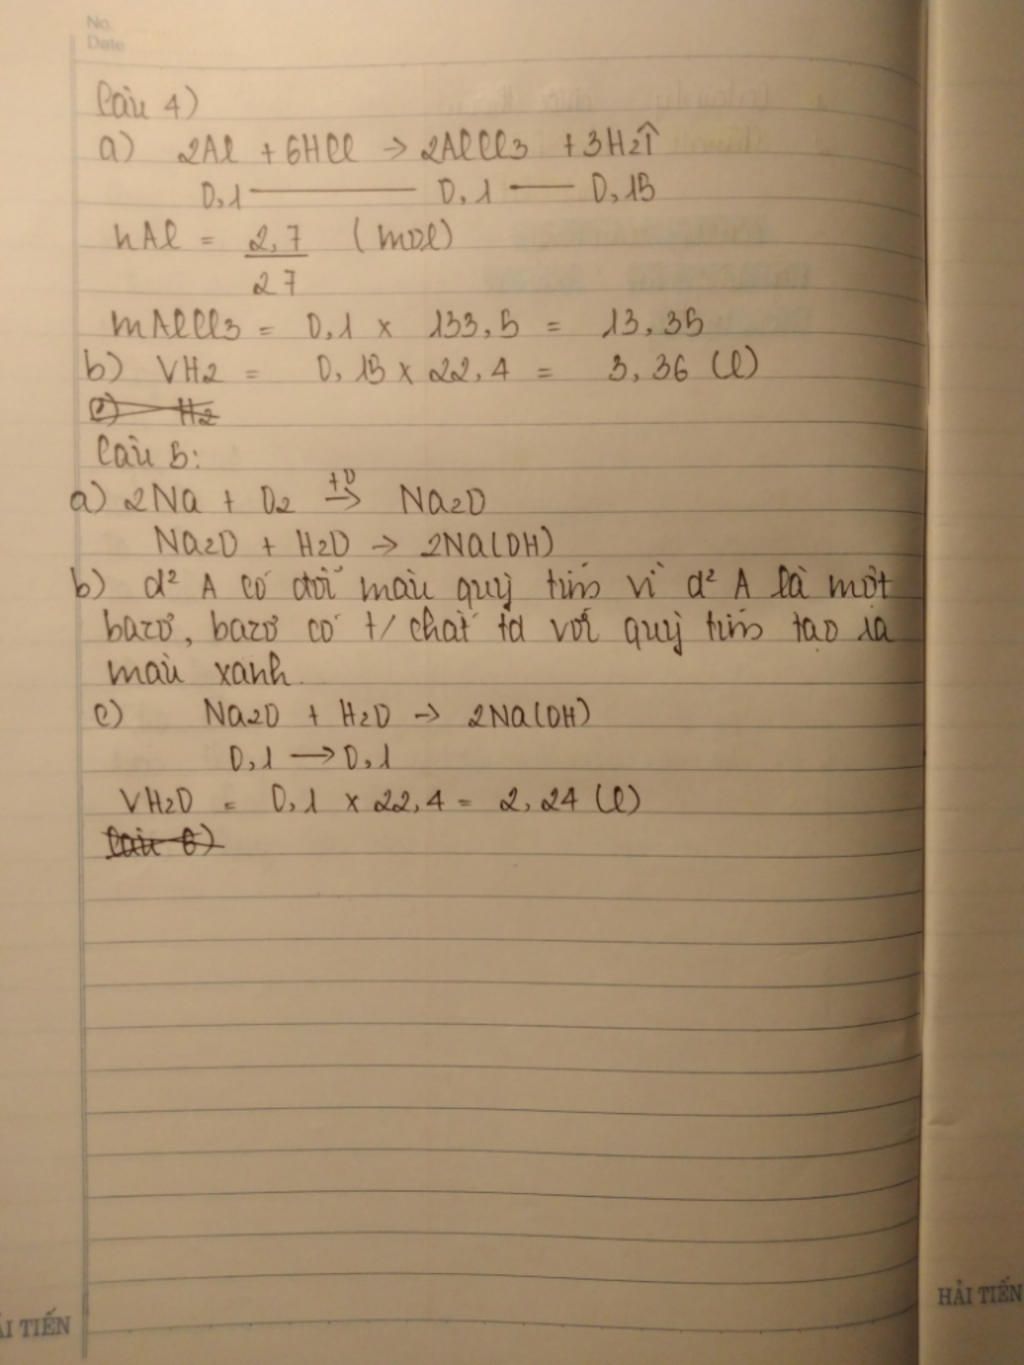 No.
Date
Câu 4)
a) 2Al + 6HCl → 2AlCl3 + 3H2↑
0,1 —— 0,1 — 0,15
nAl = 2,7 (mol)
27
mAlCl3 = 0,1 x 133,5 = 13,35
b) VH2 = 0,15 x 22,4 = 3,36 (l)
c) H2
Câu 5:
a) 2Na + O2 +O → Na2O
Na2O + H2O → 2Na(OH)
b) d² A có đổi màu quỳ tím vì d² A là một
bazơ, bazơ có t/chất td với quỳ tím tạo ra
màu xanh.
c) Na2O + H2O → 2Na(OH)
0,1 → 0,1
VH2O = 0,1 x 22,4 = 2,24 (l)
Câu 6)
HẢI TIẾN
ẢI TIẾN